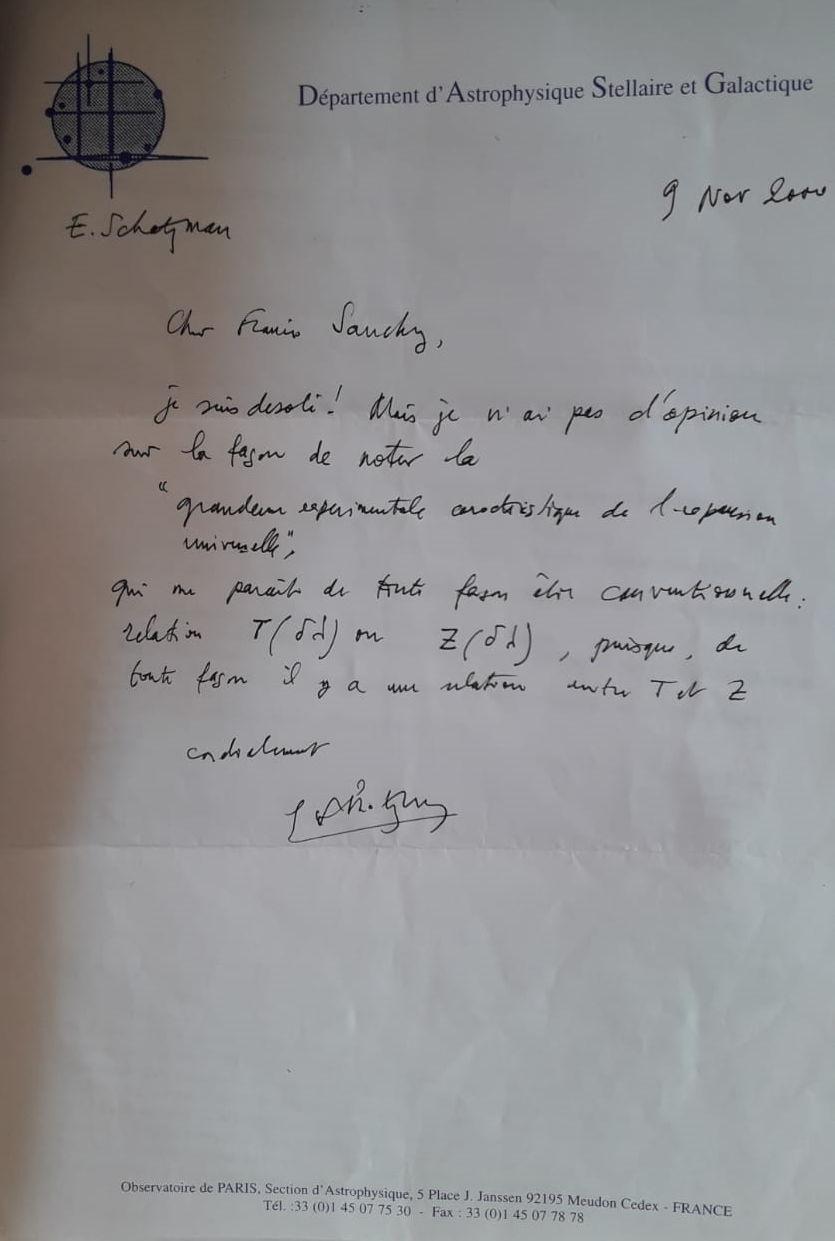 Département d'Astrophysique Stellaire et Galactique
9 Nov 2000
E. Schatzman
Cher Francis Sanchez,
je suis desolé! Mais je n'ai pas d'opinion
sur la façon de noter la
"grandeur experimentale caractéristique de l'expansion
universelle",
qui me paraît de toute façon être conventionnelle:
relation T(δλ) ou Z(δλ), puisque, de
toute façon il y a une relation entre T et Z
cordialement
Observatoire de PARIS, Section d'Astrophysique, 5 Place J. Janssen 92195 Meudon Cedex - FRANCE
Tél. :33 (0)1 45 07 75 30 - Fax : 33 (0)1 45 07 78 78